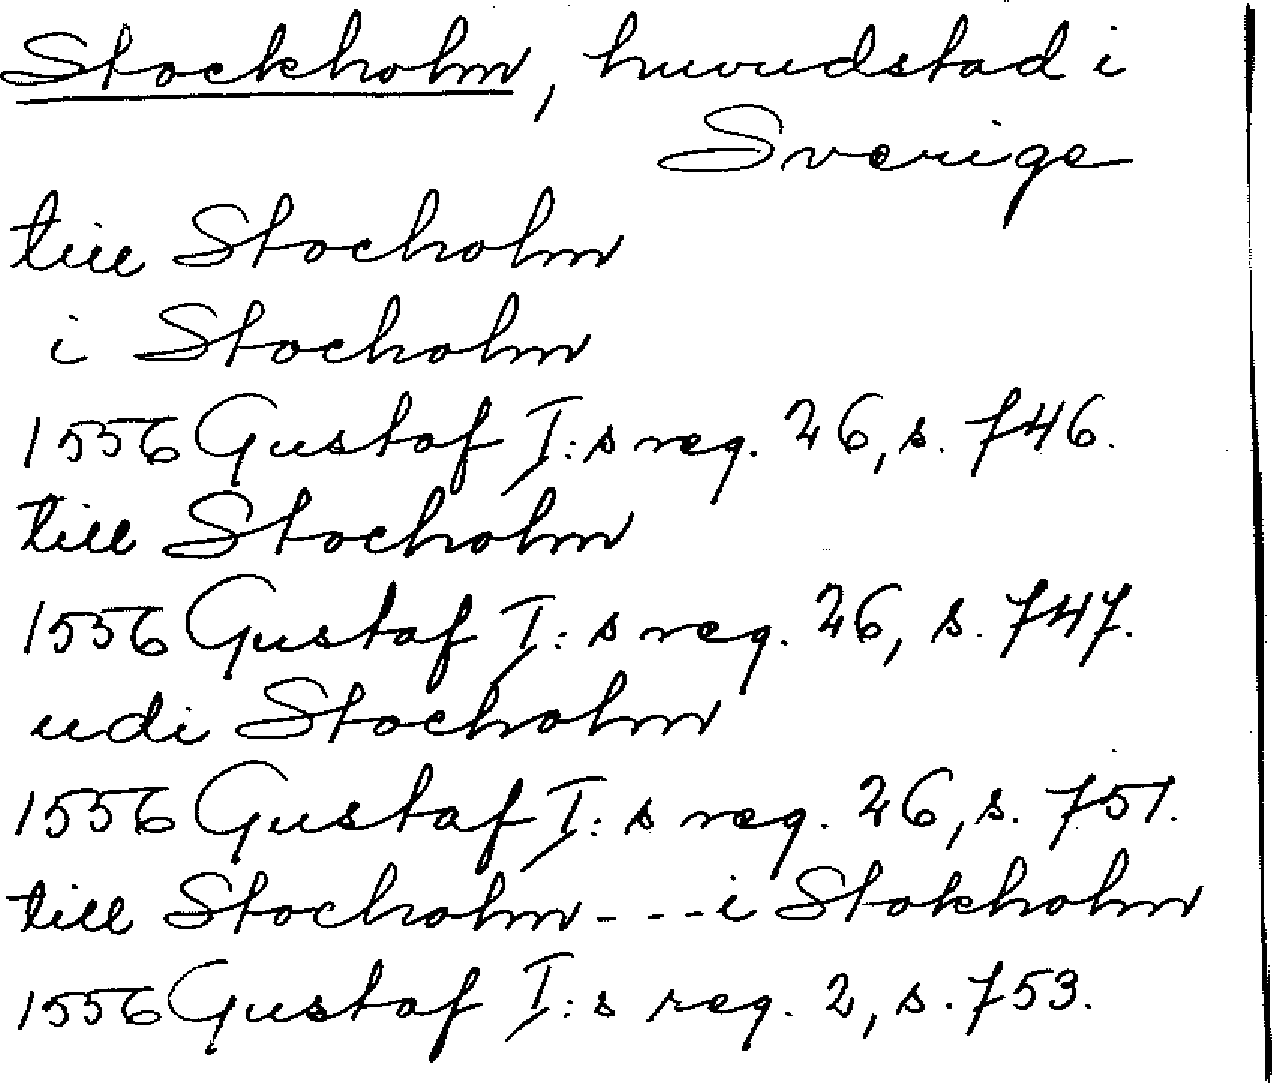 Stockholm, huvudstad i
Sverige
till Stocholm
i Stocholm
1556 Gustaf I:s reg. 26, s. 746.
till Stocholm
1556 Gustaf I:s reg. 26, s. 747.
udi Stocholm
1556 Gustaf I:s reg. 26, s. 751.
till Stocholm - - - i Stokholm
1556 Gustaf I:s reg. 2, s. 753.